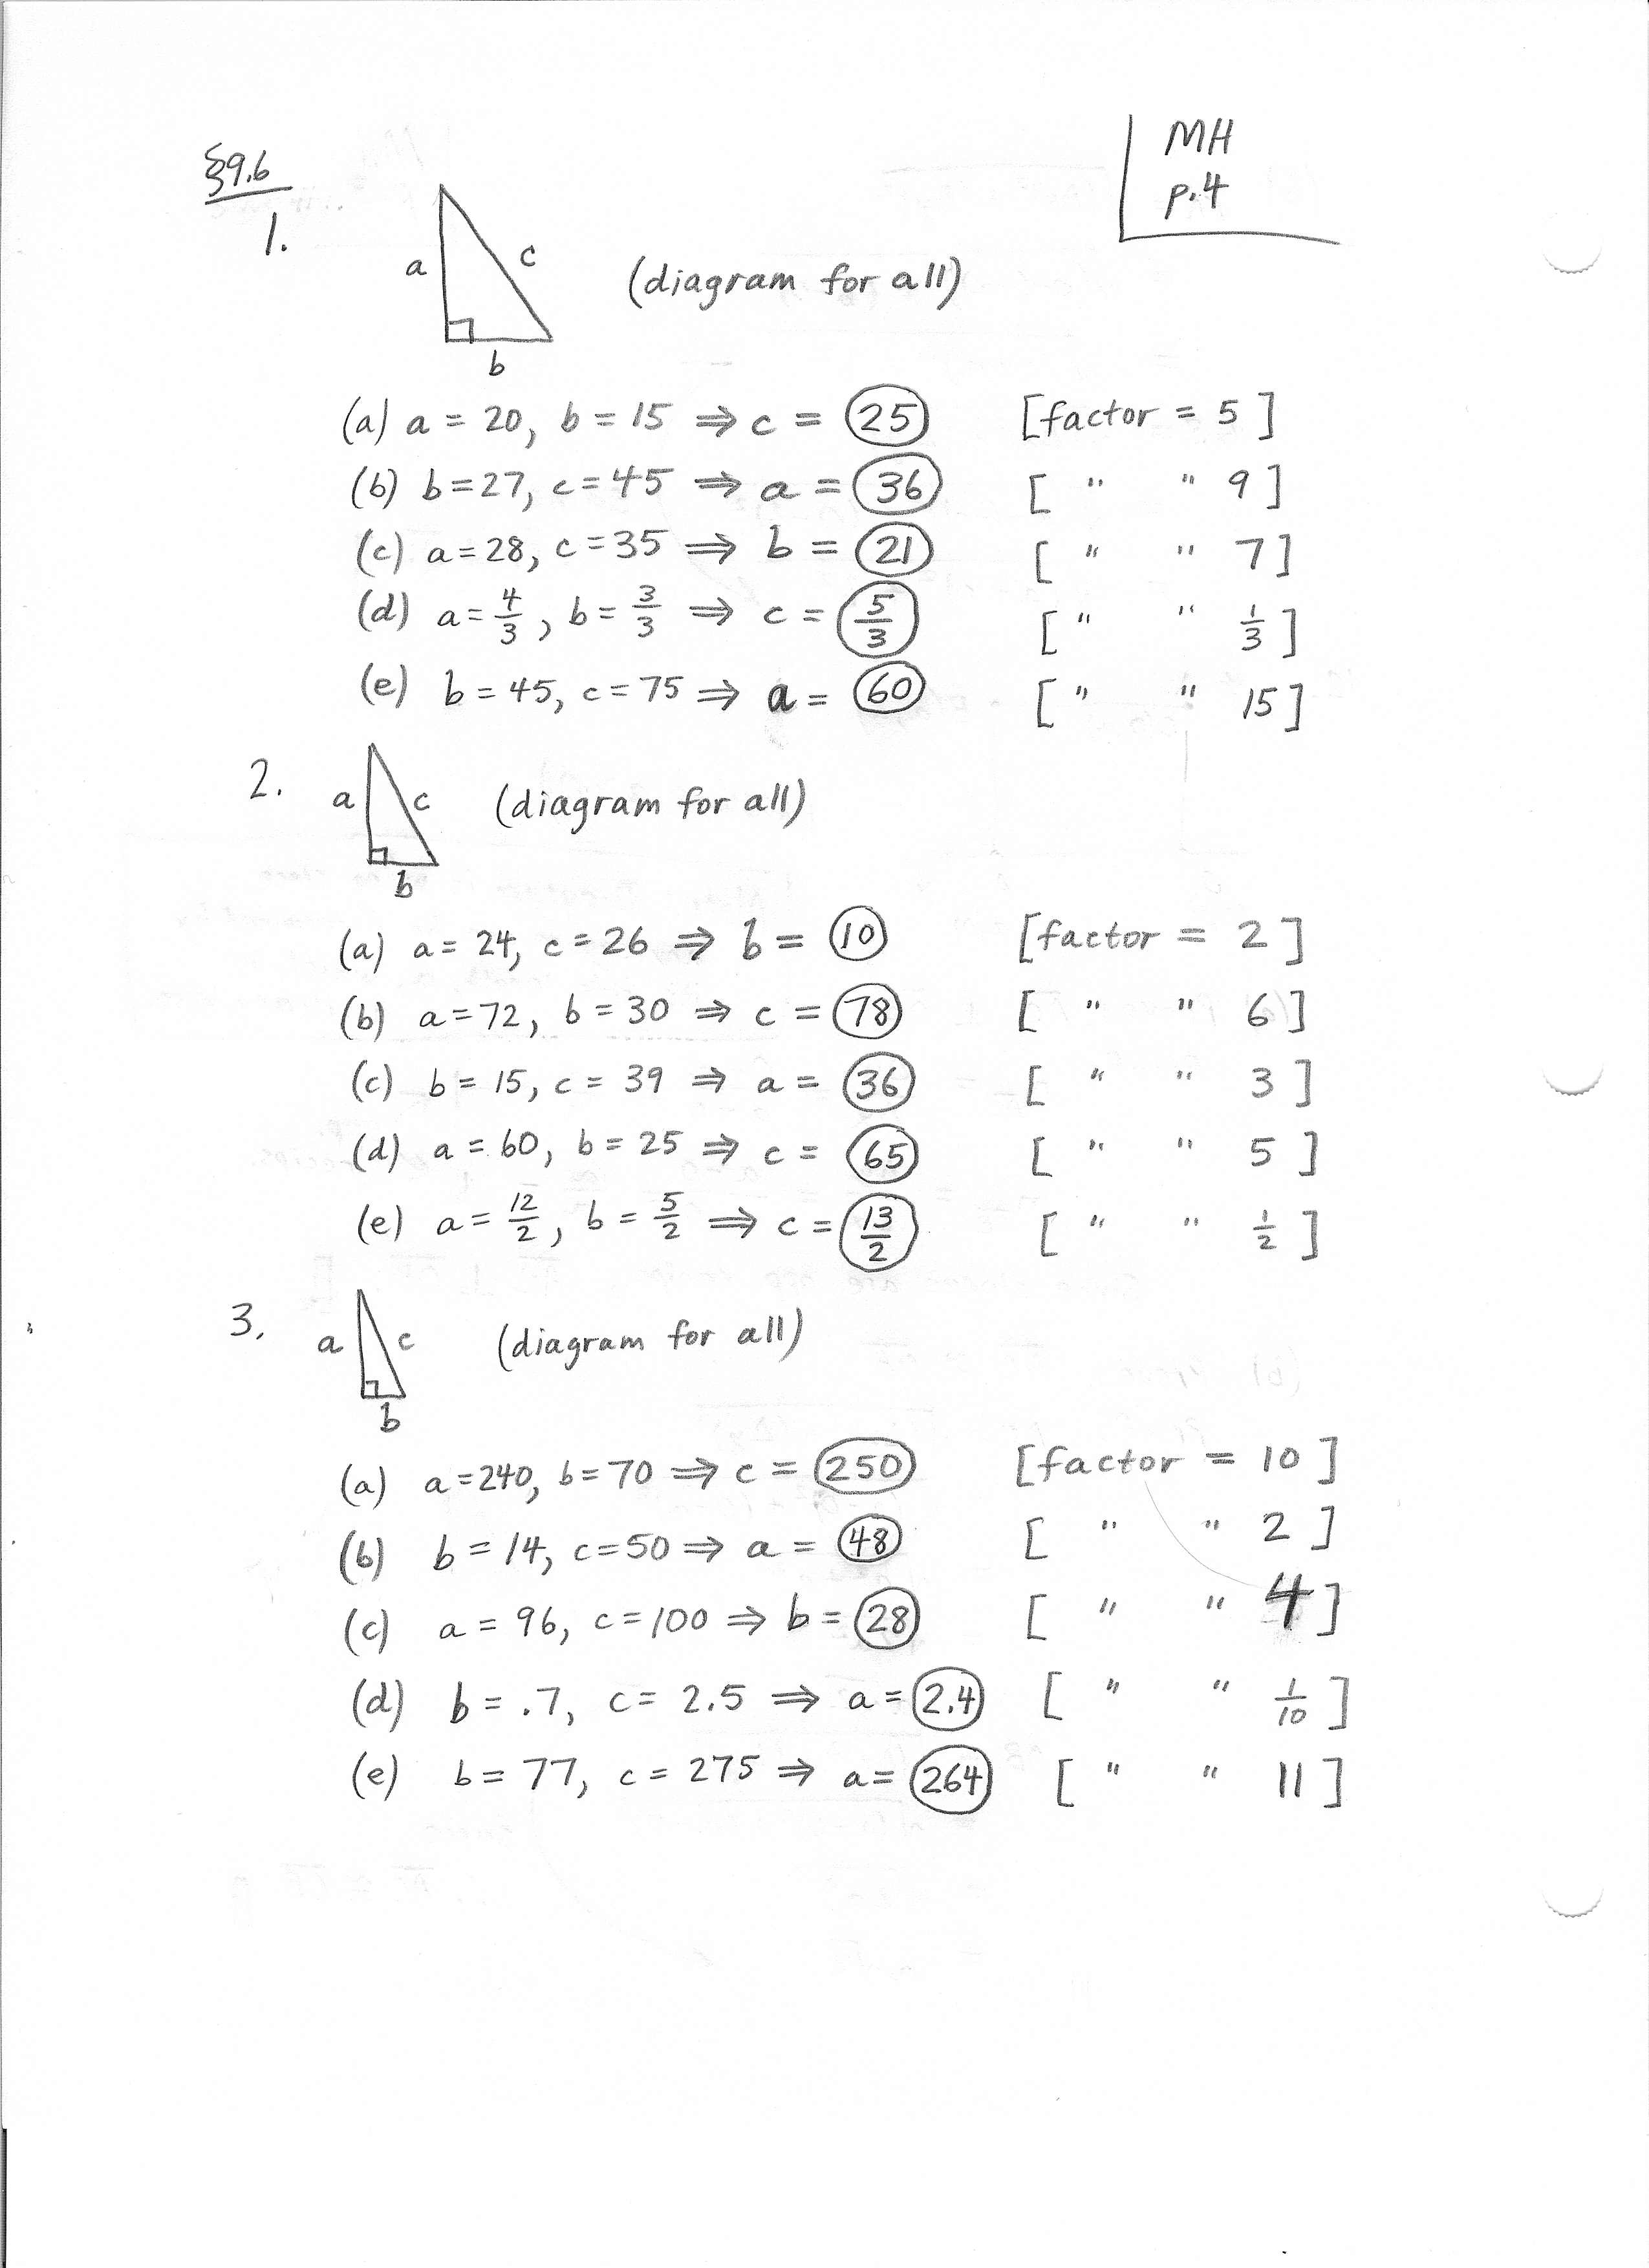 §9.6
MH
p.4
1.
a
c
b
(diagram for all)
(a) a = 20, b = 15 ⇒ c = 25 [factor = 5]
(b) b = 27, c = 45 ⇒ a = 36 [ " " 9]
(c) a = 28, c = 35 ⇒ b = 21 [ " " 7]
(d) a = 4/3, b = 3/3 ⇒ c = 5/3 [ " " 1/3]
(e) b = 45, c = 75 ⇒ a = 60 [ " " 15]
2.
a
c
b
(diagram for all)
(a) a = 24, c = 26 ⇒ b = 10 [factor = 2]
(b) a = 72, b = 30 ⇒ c = 78 [ " " 6]
(c) b = 15, c = 39 ⇒ a = 36 [ " " 3]
(d) a = 60, b = 25 ⇒ c = 65 [ " " 5]
(e) a = 12/2, b = 5/2 ⇒ c = 13/2 [ " " 1/2]
3.
a
c
b
(diagram for all)
(a) a = 240, b = 70 ⇒ c = 250 [factor = 10]
(b) b = 14, c = 50 ⇒ a = 48 [ " " 2]
(c) a = 96, c = 100 ⇒ b = 28 [ " " 4]
(d) b = .7, c = 2.5 ⇒ a = 2.4 [ " " 1/10]
(e) b = 77, c = 275 ⇒ a = 264 [ " " 11]